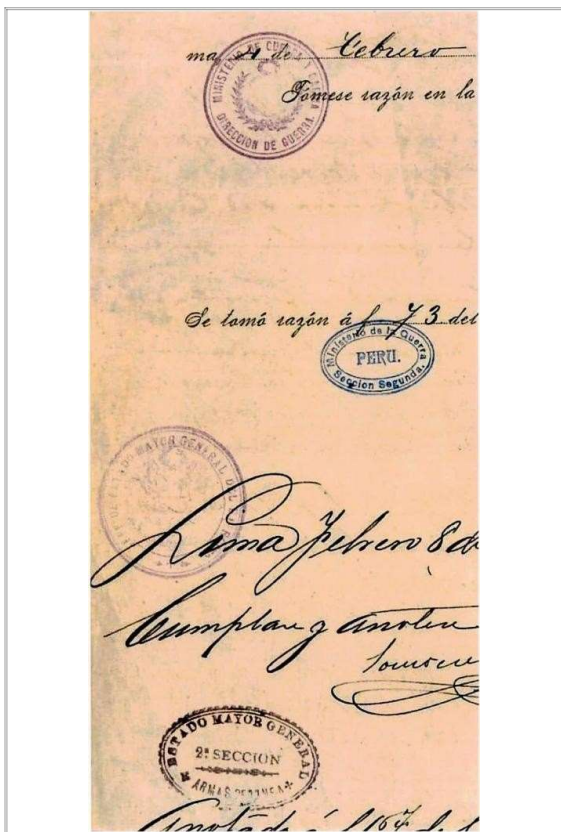 ma 4 de Febrero
MINISTERIO DE GUERRA Y MARINA
DIRECCION DE GUERRA
Tómese razón en la
Se tomó razón á f 73 del
Ministerio de la Guerra
PERU.
Seccion Segunda.
ESTADO MAYOR GENERAL DEL
Lima Febrero 8 de
Cumplase y anótese
ESTADO MAYOR GENERAL
2ª SECCION
ARMAS
Anotado á f 167 del